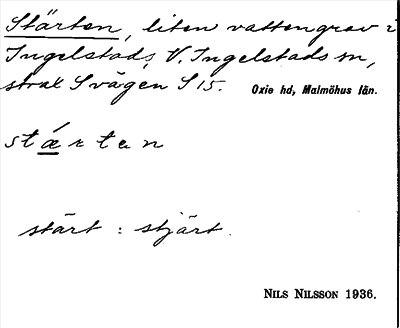 Stärten, liten vattengrav i
Ingelstads, V. Ingelstads sn,
strax S vägen S 15. Oxie hd, Malmöhus län.
stǽrten
stärt : stjärt.
NILS NILSSON 1936.